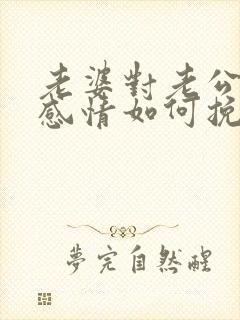 老婆對老公
感情如何挽
夢完自然醒